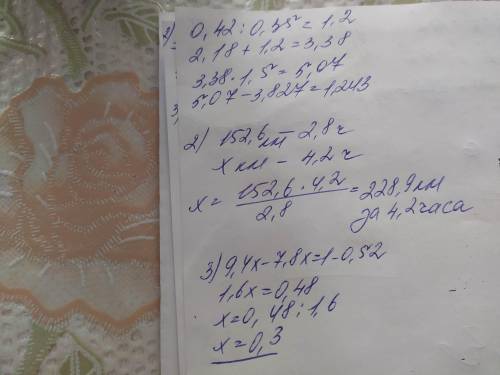 1) 0,42 : 0,35 = 1,2
2,18 + 1,2 = 3,38
3,38 · 1,5 = 5,07
5,07 - 3,827 = 1,243
2) 152,6 км - 2,8 ч
х км - 4,2 ч
х = 152,6 · 4,2 / 2,8 = 228,9 км
за 4,2 часа
3) 9,4х - 7,8х = 1 - 0,52
1,6х = 0,48
х = 0,48 : 1,6
х = 0,3